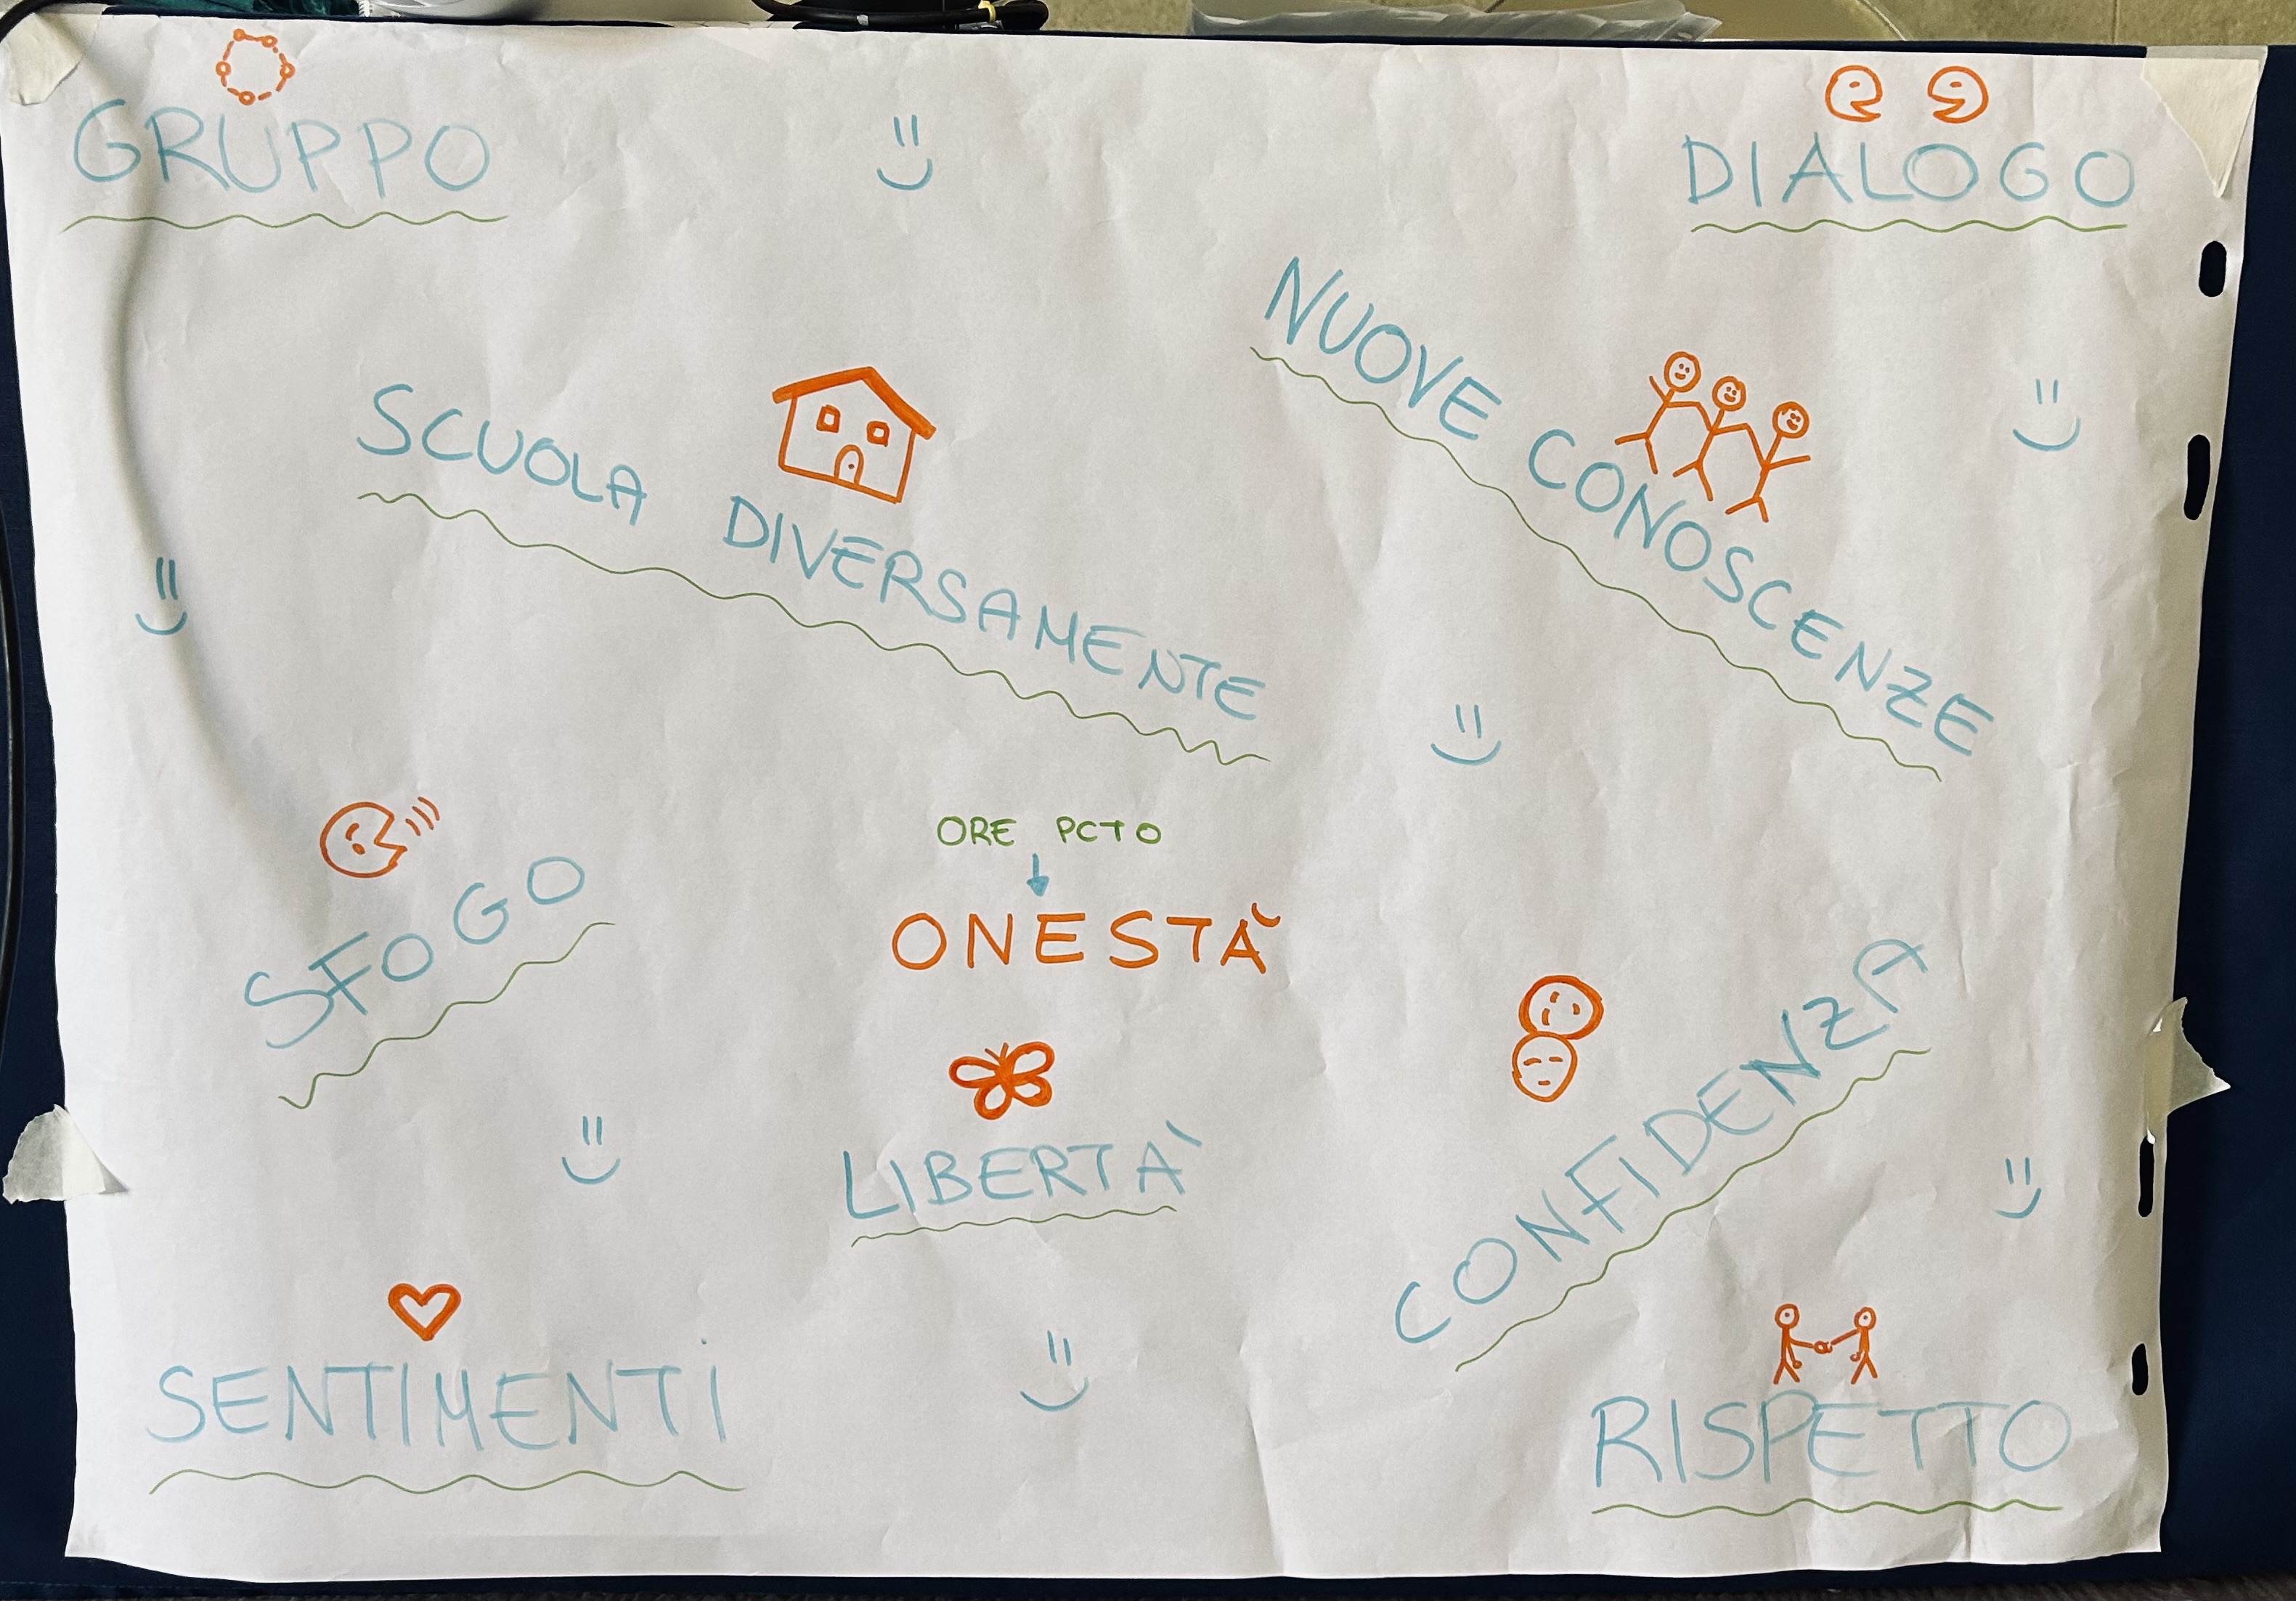 GRUPPO
DIALOGO
NUOVE CONOSCENZE
SCUOLA DIVERSAMENTE
SFOGO
ORE PCTO
ONESTÀ
LIBERTÀ
CONFIDENZA
SENTIMENTi
RISPETTO